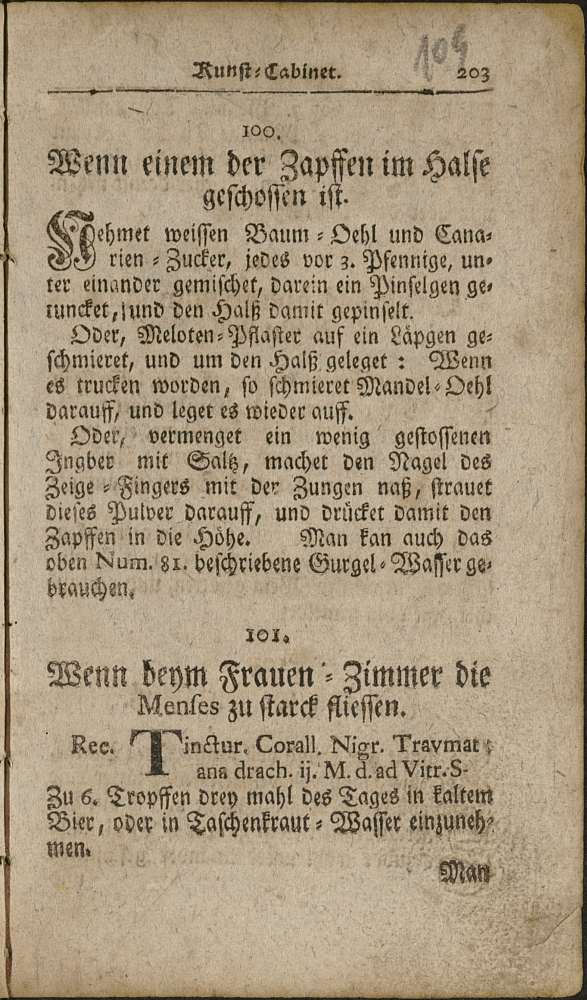 109
Kunst-Cabinet. 203
100.
Wenn einem der Zapffen im Halse
geschossen ist.
Nehmet weissen Baum-Oehl und Cana-
rien-Zucker, jedes vor 3. Pfennige, un-
ter einander gemischet, darein ein Pinselgen ge-
tuncket, und den Halß damit gepinselt.
Oder, Meloten-Pflaster auf ein Läpgen ge-
schmieret, und um den Halß geleget: Wenn
es trucken worden, so schmieret Mandel-Oehl
darauff, und leget es wieder auff.
Oder, vermenget ein wenig gestossenen
Ingber mit Saltz, machet den Nagel des
Zeige-Fingers mit der Zungen naß, strauet
dieses Pulver darauff, und drücket damit den
Zapffen in die Höhe. Man kan auch das
oben Num. 81. beschriebene Gurgel-Wasser ge-
brauchen.
101.
Wenn beym Frauen-Zimmer die
Menses zu starck fliessen.
Rec. Tinctur. Corall. Nigr. Travmat:
ana drach. ij. M. d. ad Vitr. S-
Zu 6. Tropffen drey mahl des Tages in kaltem
Bier, oder in Taschenkraut-Wasser einzuneh-
men.
Man